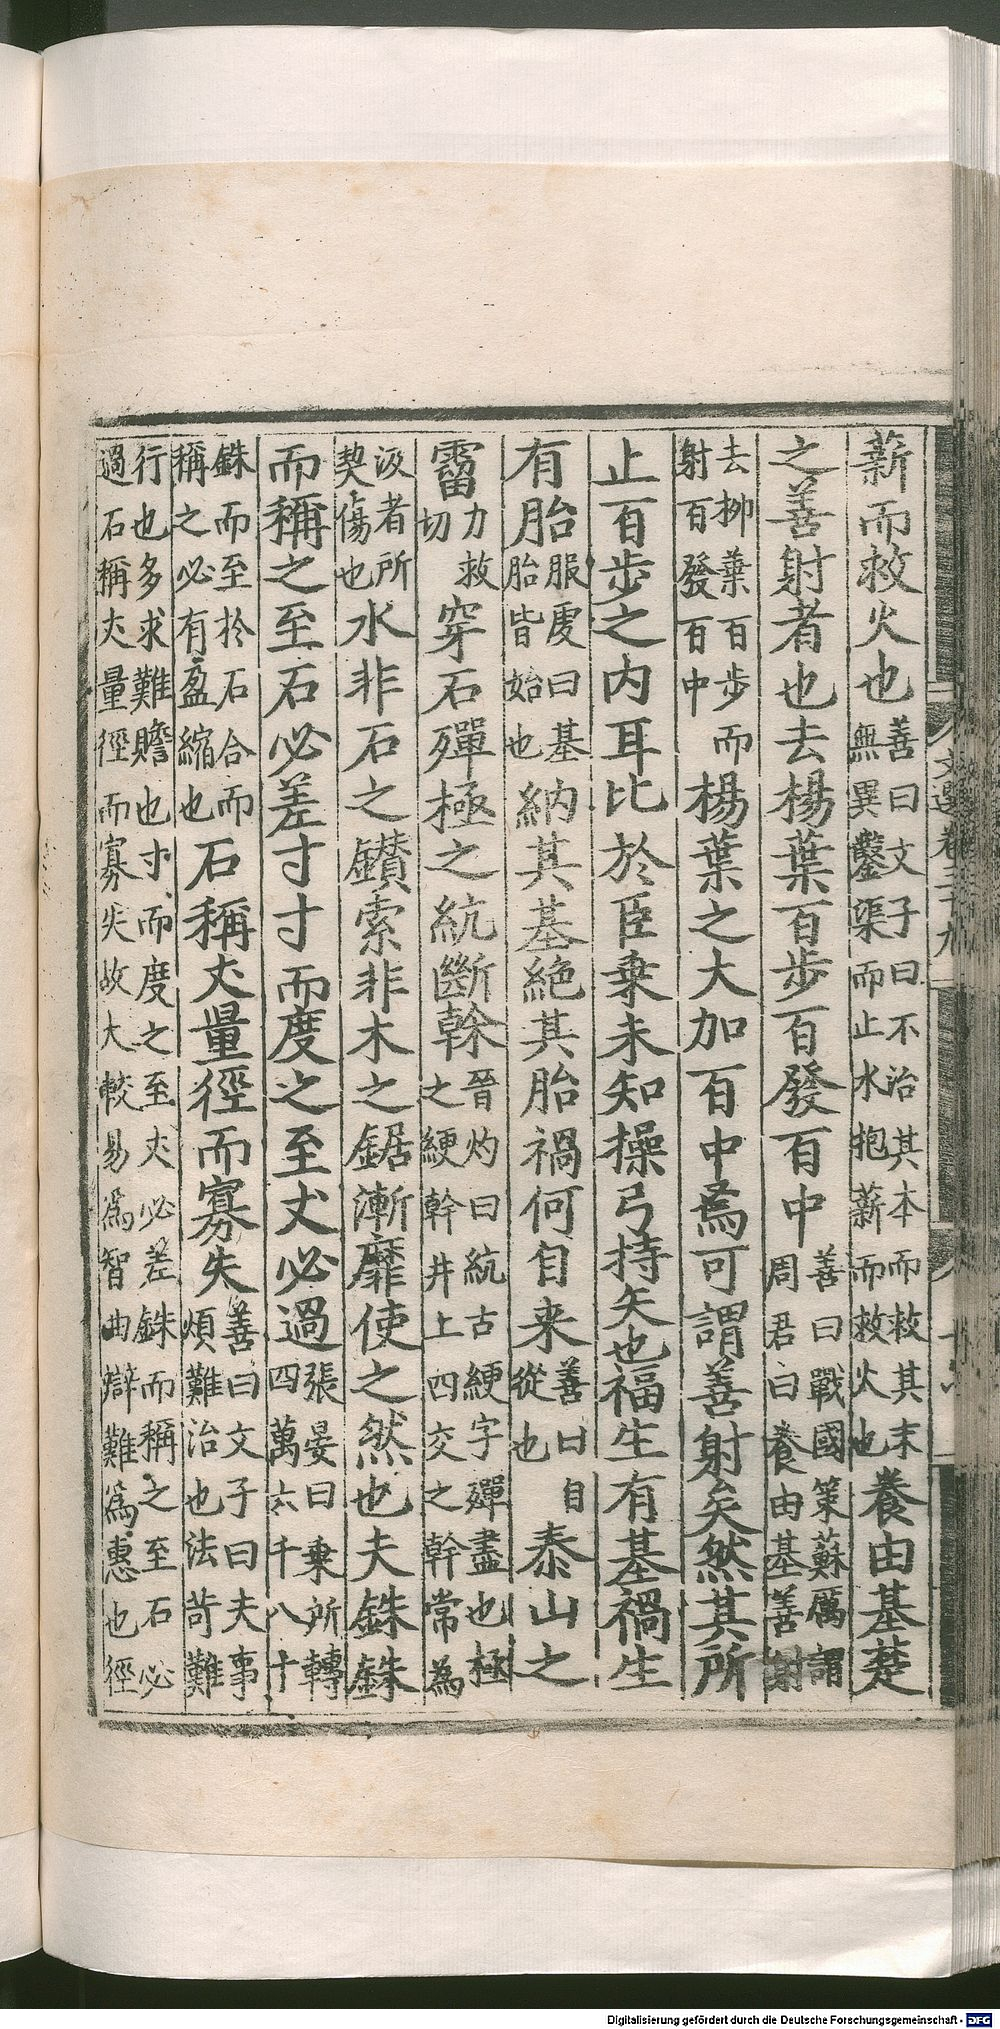 薪而救火也善曰文子曰不治其本而救其末無異鑿渠而止水抱薪而救火也養由基楚
之善射者也去楊葉百步百發百中善曰戰國策蘇厲謂周君曰養由基善射
去柳葉百步而射百發百中楊葉之大加百中焉可謂善射矣然其所
止百步之内耳比於臣乗未知操弓持矢也福生有基禍生
有胎服虔曰基胎皆始也納其基絶其胎禍何自来善曰自從也泰山之
霤力救切穿石殫極之統斷幹晉灼曰統古綆字殫盡也極之綆幹井上四交之幹常為
汲者所契傷也水非石之鑚索非木之鋸漸靡使之然也夫銖銖
而稱之至石必差寸寸而度之至丈必過張晏曰乗所轉四萬六千八十
銖而至於石合而稱之必有盈縮也石稱丈量徑而寡失善曰文子曰夫事煩難治也法苛難
行也多求難贍也寸而度之至丈必差銖而稱之至石必過石稱丈量徑而寡失故大較易為智曲辯難為惠也徑
文選卷三十九
Digitalisierung gefördert durch die Deutsche Forschungsgemeinschaft - DFG